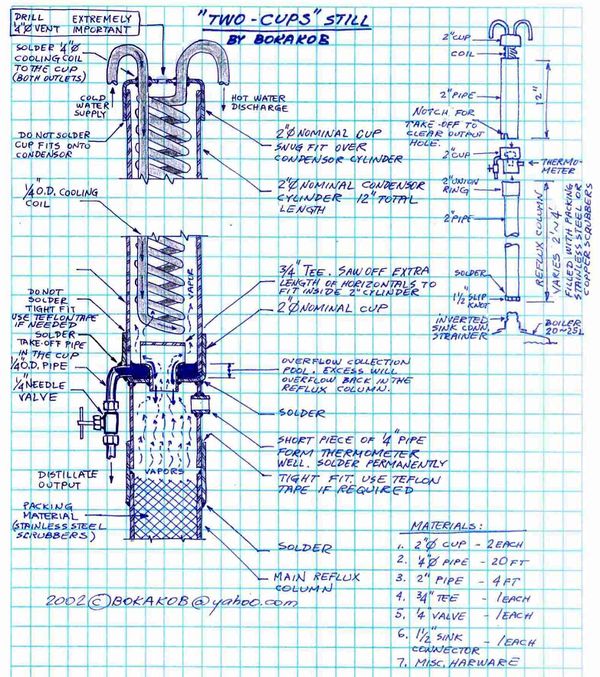 "TWO-CUPS" STILL
BY BOKAKOB
DRILL
¼"Ø VENT
EXTREMELY
IMPORTANT
SOLDER ¼"Ø
COOLING COIL
TO THE CUP
(BOTH OUTLETS)
COLD
WATER
SUPPLY
HOT WATER
DISCHARGE
DO NOT SOLDER
CUP FITS ONTO
CONDENSOR
2"Ø NOMINAL CUP
SNUG FIT OVER
CONDENSOR CYLINDER
¼"O.D. COOLING
COIL
2"Ø NOMINAL CONDENSOR
CYLINDER 12" TOTAL
LENGTH
VAPOR
¾" TEE. SAW OFF EXTRA
LENGTH OF HORIZONTALS TO
FIT INSIDE 2" CYLINDER
2"Ø NOMINAL CUP
DO NOT
SOLDER
TIGHT FIT.
USE TEFLON TAPE
IF NEEDED
SOLDER
TAKE-OFF PIPE
IN THE CUP
¼"O.D. PIPE
¼" NEEDLE
VALVE
OVERFLOW COLLECTION
POOL. EXCESS WILL
OVERFLOW BACK IN THE
REFLUX COLUMN.
SOLDER
SHORT PIECE OF ¼" PIPE
FORM THERMOMETER
WELL. SOLDER PERMANENTLY
TIGHT FIT. USE TEFLON
TAPE IF REQUIRED
VAPORS
DISTILLATE
OUTPUT
PACKING
MATERIAL
(STAINLESS STEEL
SCRUBBERS)
SOLDER
MAIN REFLUX
COLUMN
2002 © BOKAKOB@yahoo.com
2" CUP
COIL
2" PIPE
12"
NOTCH FOR
TAKE-OFF TO
CLEAR OUTPUT
HOLE.
2" CUP
THERMO-
METER
2" UNION
RING
2" PIPE
REFLUX COLUMN
VARIES 2'~4'
FILLED WITH PACKING
STAINLESS STEEL OR
COPPER SCRUBBERS
SOLDER
1½" SLIP
KNOT
INVERTED
SINK CONN.
STRAINER
BOILER
20~25L
MATERIALS:
1. 2"Ø CUP - 2 EACH
2. ¼"Ø PIPE - 20 FT
3. 2" PIPE - 4 FT
4. ¾" TEE - 1 EACH
5. ¼ VALVE - 1 EACH
6. 1½" SINK - 1 EACH
CONNECTOR
7. MISC. HARWARE